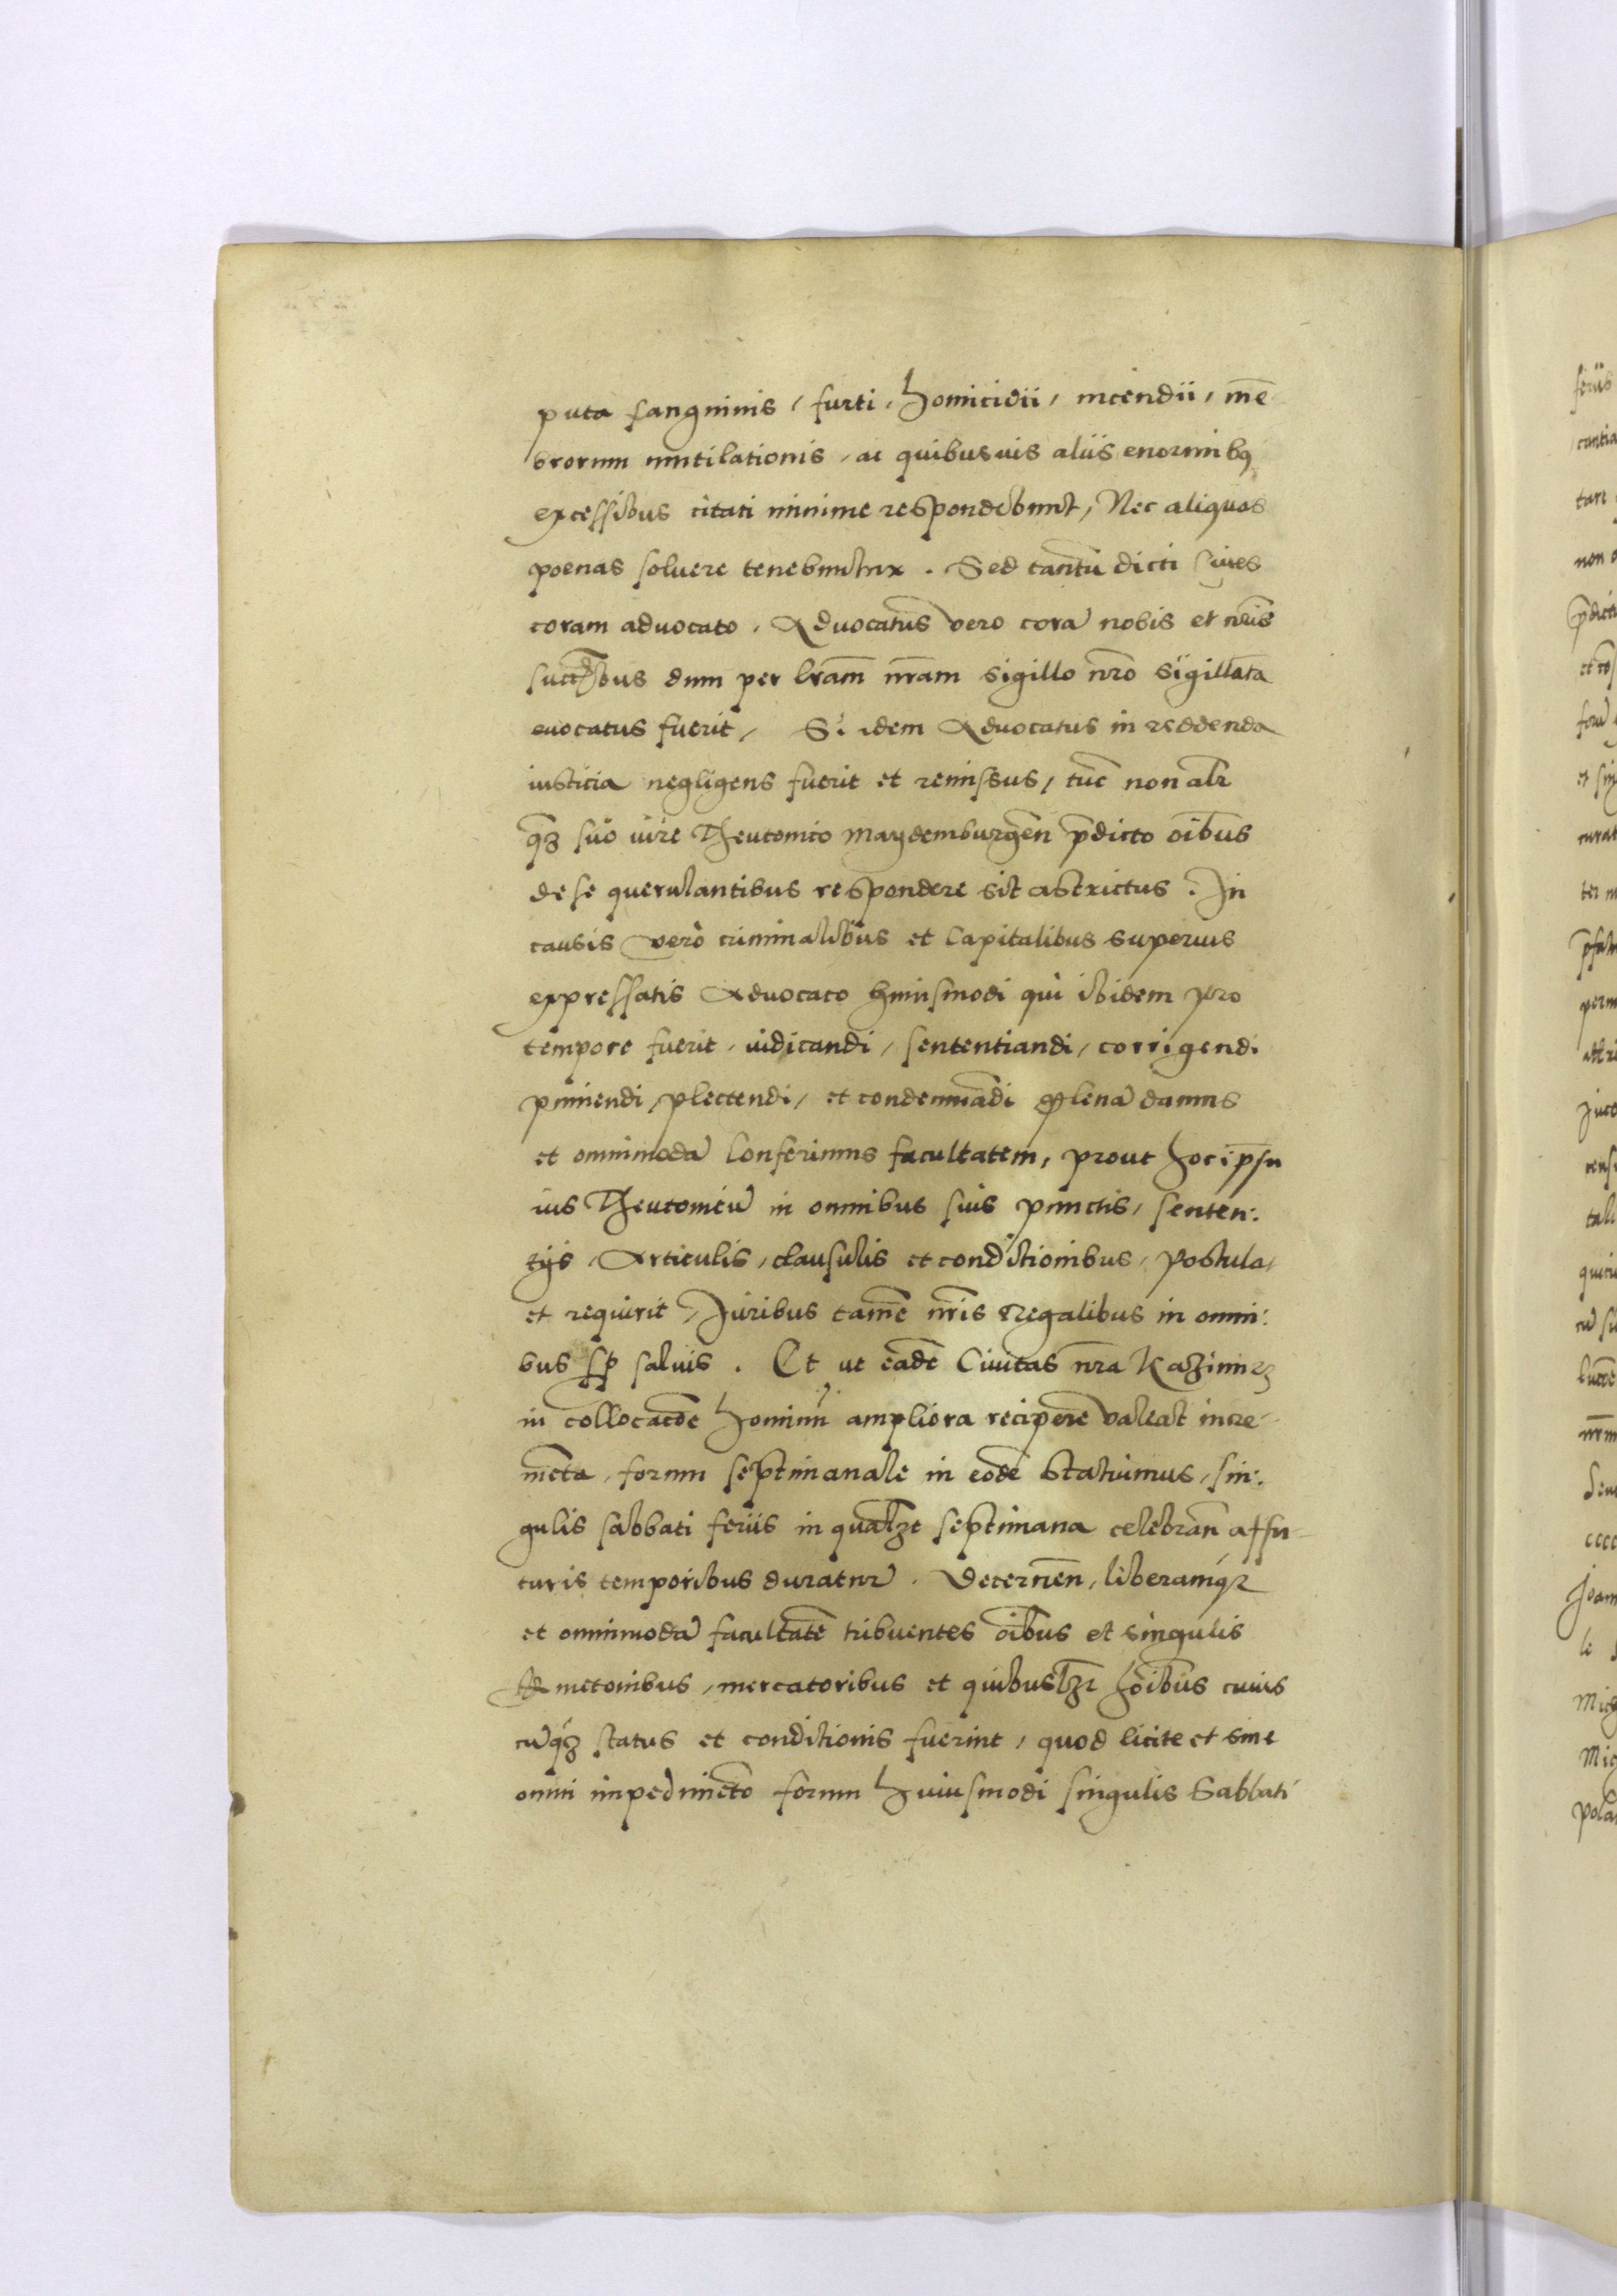 puta sanguinis, furti, homicidii, incendii, mē
brorum mutilationis, ac quibusuis aliis enormibꝫ
excessibus citati minime respondebunt, Nec aliquas
poenas soluere tenebuntur. Sed tantū dicti Ciues
coram aduocato. Aduocatus vero corā nobis et nr̄is
dum per lr̄am nr̄am sigillo nr̄o sigillatā
euocatus fuerit, Si idem Aduocatus in reddenda
iusticia negligens fuerit et remissus, tūc non alr̄
qꝫ suo iure Theutonico Maydemburgeñ p̄dicto oībus
de se querulantibus respondere sit astrictus. In
causis vero criminalibus et Capitalibus superius
expressatis Aduocato huiusmodi qui ibidem pro
tempore fuerit, iudicandi, sententiandi, corrigendi
puniendi, plectendi, et condemnādi plenā damus
et omnimodā Conferimus facultatem, prout hoc ipsū
ius Theutonicū in omnibus suis punctis, senten:
tijs, Articulis, clausulis et conditionibus, postula,
et requirit, Iuribus tamē nr̄is Regalibus in omni:
bus sp̄ saluis. Et ut eadē Ciuitas nr̄a Kazimirz
in collocatōe hominū ampliora recipere valeat incre-
mēta, forum septimanale in eodē Statuimus, sin:
gulis sabbati feriis in qualꝫt septimana celebrañ affu-
turis temporibus duraturū. Decerneñ, liberamqꝫ
et omnimodā facultatē tribuentes oībus et singulis
Kmetonibus, mercatoribus et quibuslꝫt hōibus cuius
cūqꝫ status et conditionis fuerint, quod licite et sine
omni impedimēto forum huiusmodi singulis Sabbati